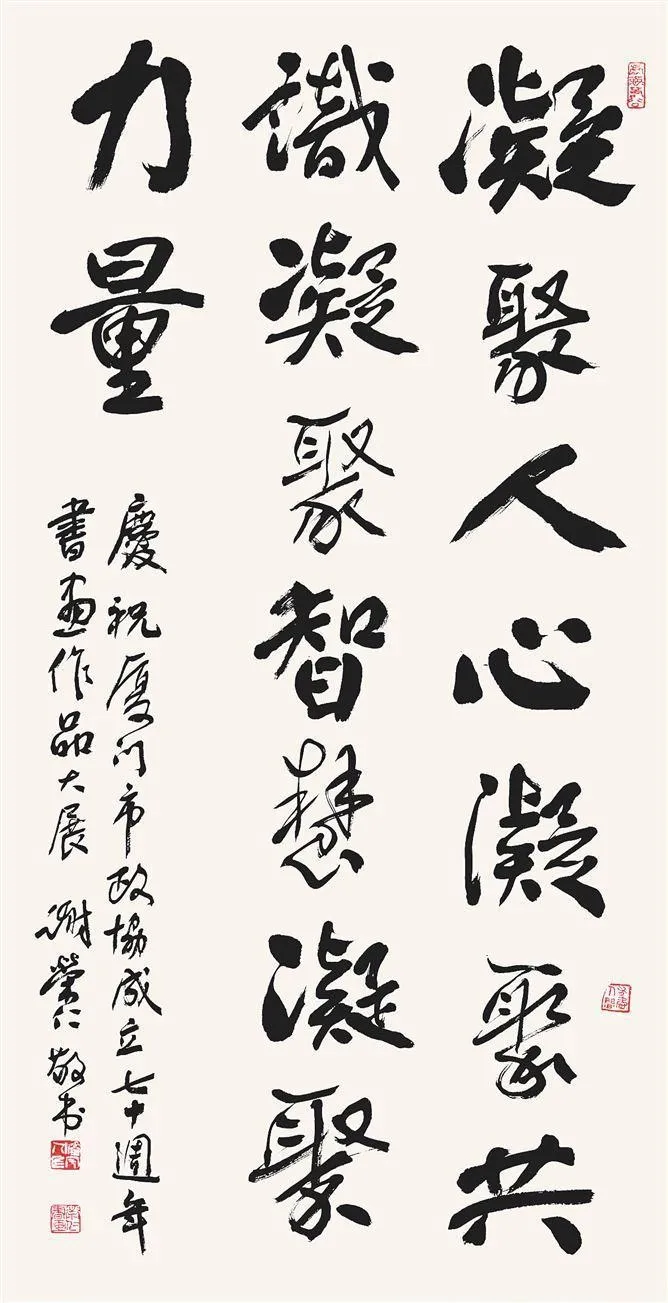 凝聚人心凝聚共
識凝聚智慧凝聚
力量
慶祝廈门市政協成立七十週年
書画作品大展 謝榮仁敬书